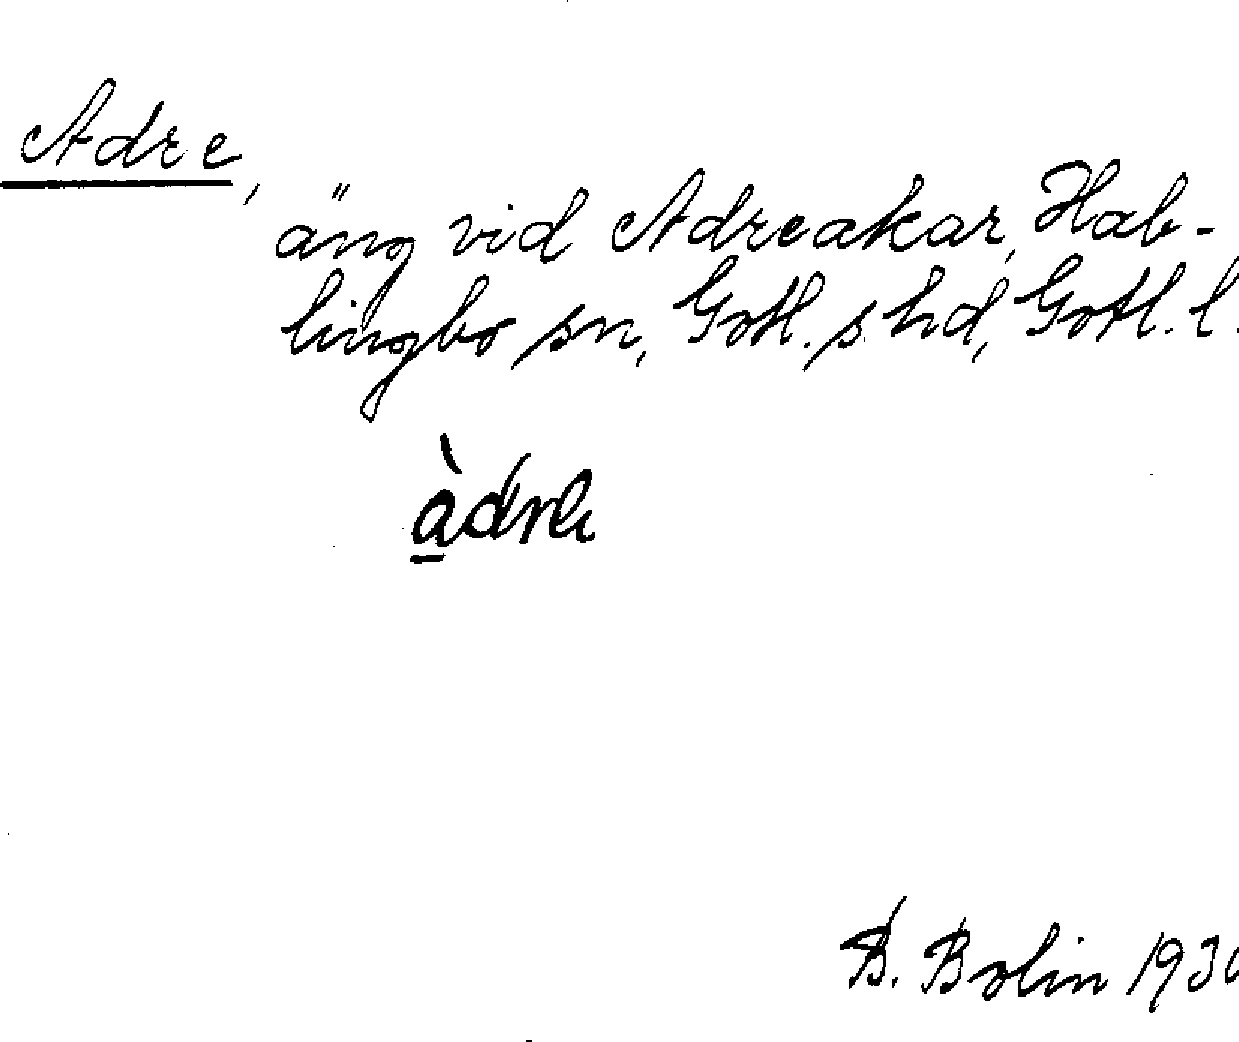 Adre,
äng vid Adreakar, Hab-
lingbo sn, Gotl. s hd, Gotl. l.
B. Bolin